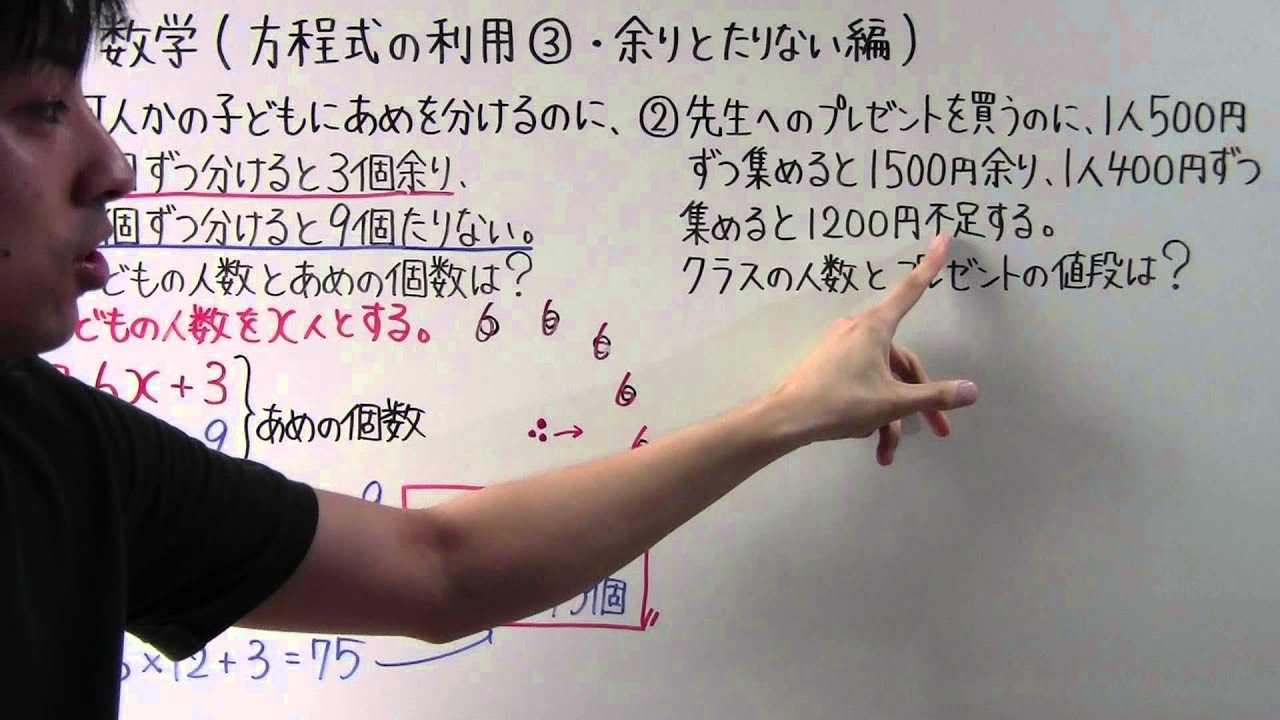 数学(方程式の利用③・余りとたりない編)
人かの子どもにあめを分けるのに、
ずつ分けると3個余り、
個ずつ分けると9個たりない。
どもの人数とあめの個数は?
どもの人数をx人とする。
6x+3
9
あめの個数
6 6 6 6
∴→
個
×12+3=75
②先生へのプレゼントを買うのに、1人500円
ずつ集めると1500円余り、1人400円ずつ
集めると1200円不足する。
クラスの人数とプレゼントの値段は?